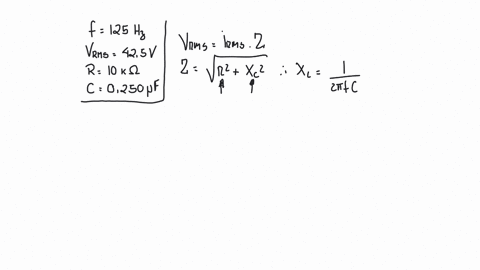 f = 125 Hz
VRMS = 42.5 V
R = 10 KΩ
C = 0.250 µF
VRMS = iRMS · Z
Z = √R² + Xc² ∴ Xc = 1 / 2πfC